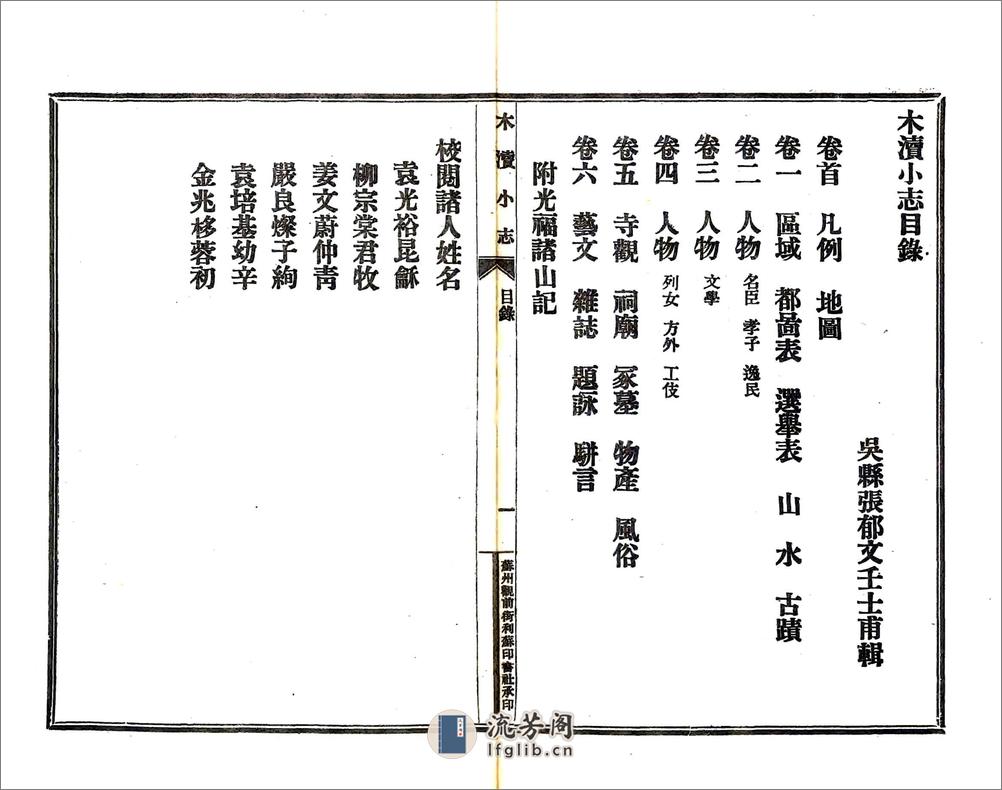 木瀆小志目錄
吳縣張郁文壬士甫輯
卷首 凡例 地圖
卷一 區域 都啚表 選舉表 山 水 古蹟
卷二 人物 名臣 孝子 逸民
卷三 人物 文學
卷四 人物 列女 方外 工伎
卷五 寺觀 祠廟 冢墓 物產 風俗
卷六 藝文 雜誌 題詠 駢言
附光福諸山記
木瀆小志
目錄
一
蘇州觀前街利蘇印書社承印
校閱諸人姓名
袁光裕昆龢
柳宗棠君牧
姜文蔚仲靑
嚴良燦子絢
袁培基幼辛
金兆栘蓉初
流芳阁
lfglib.cn